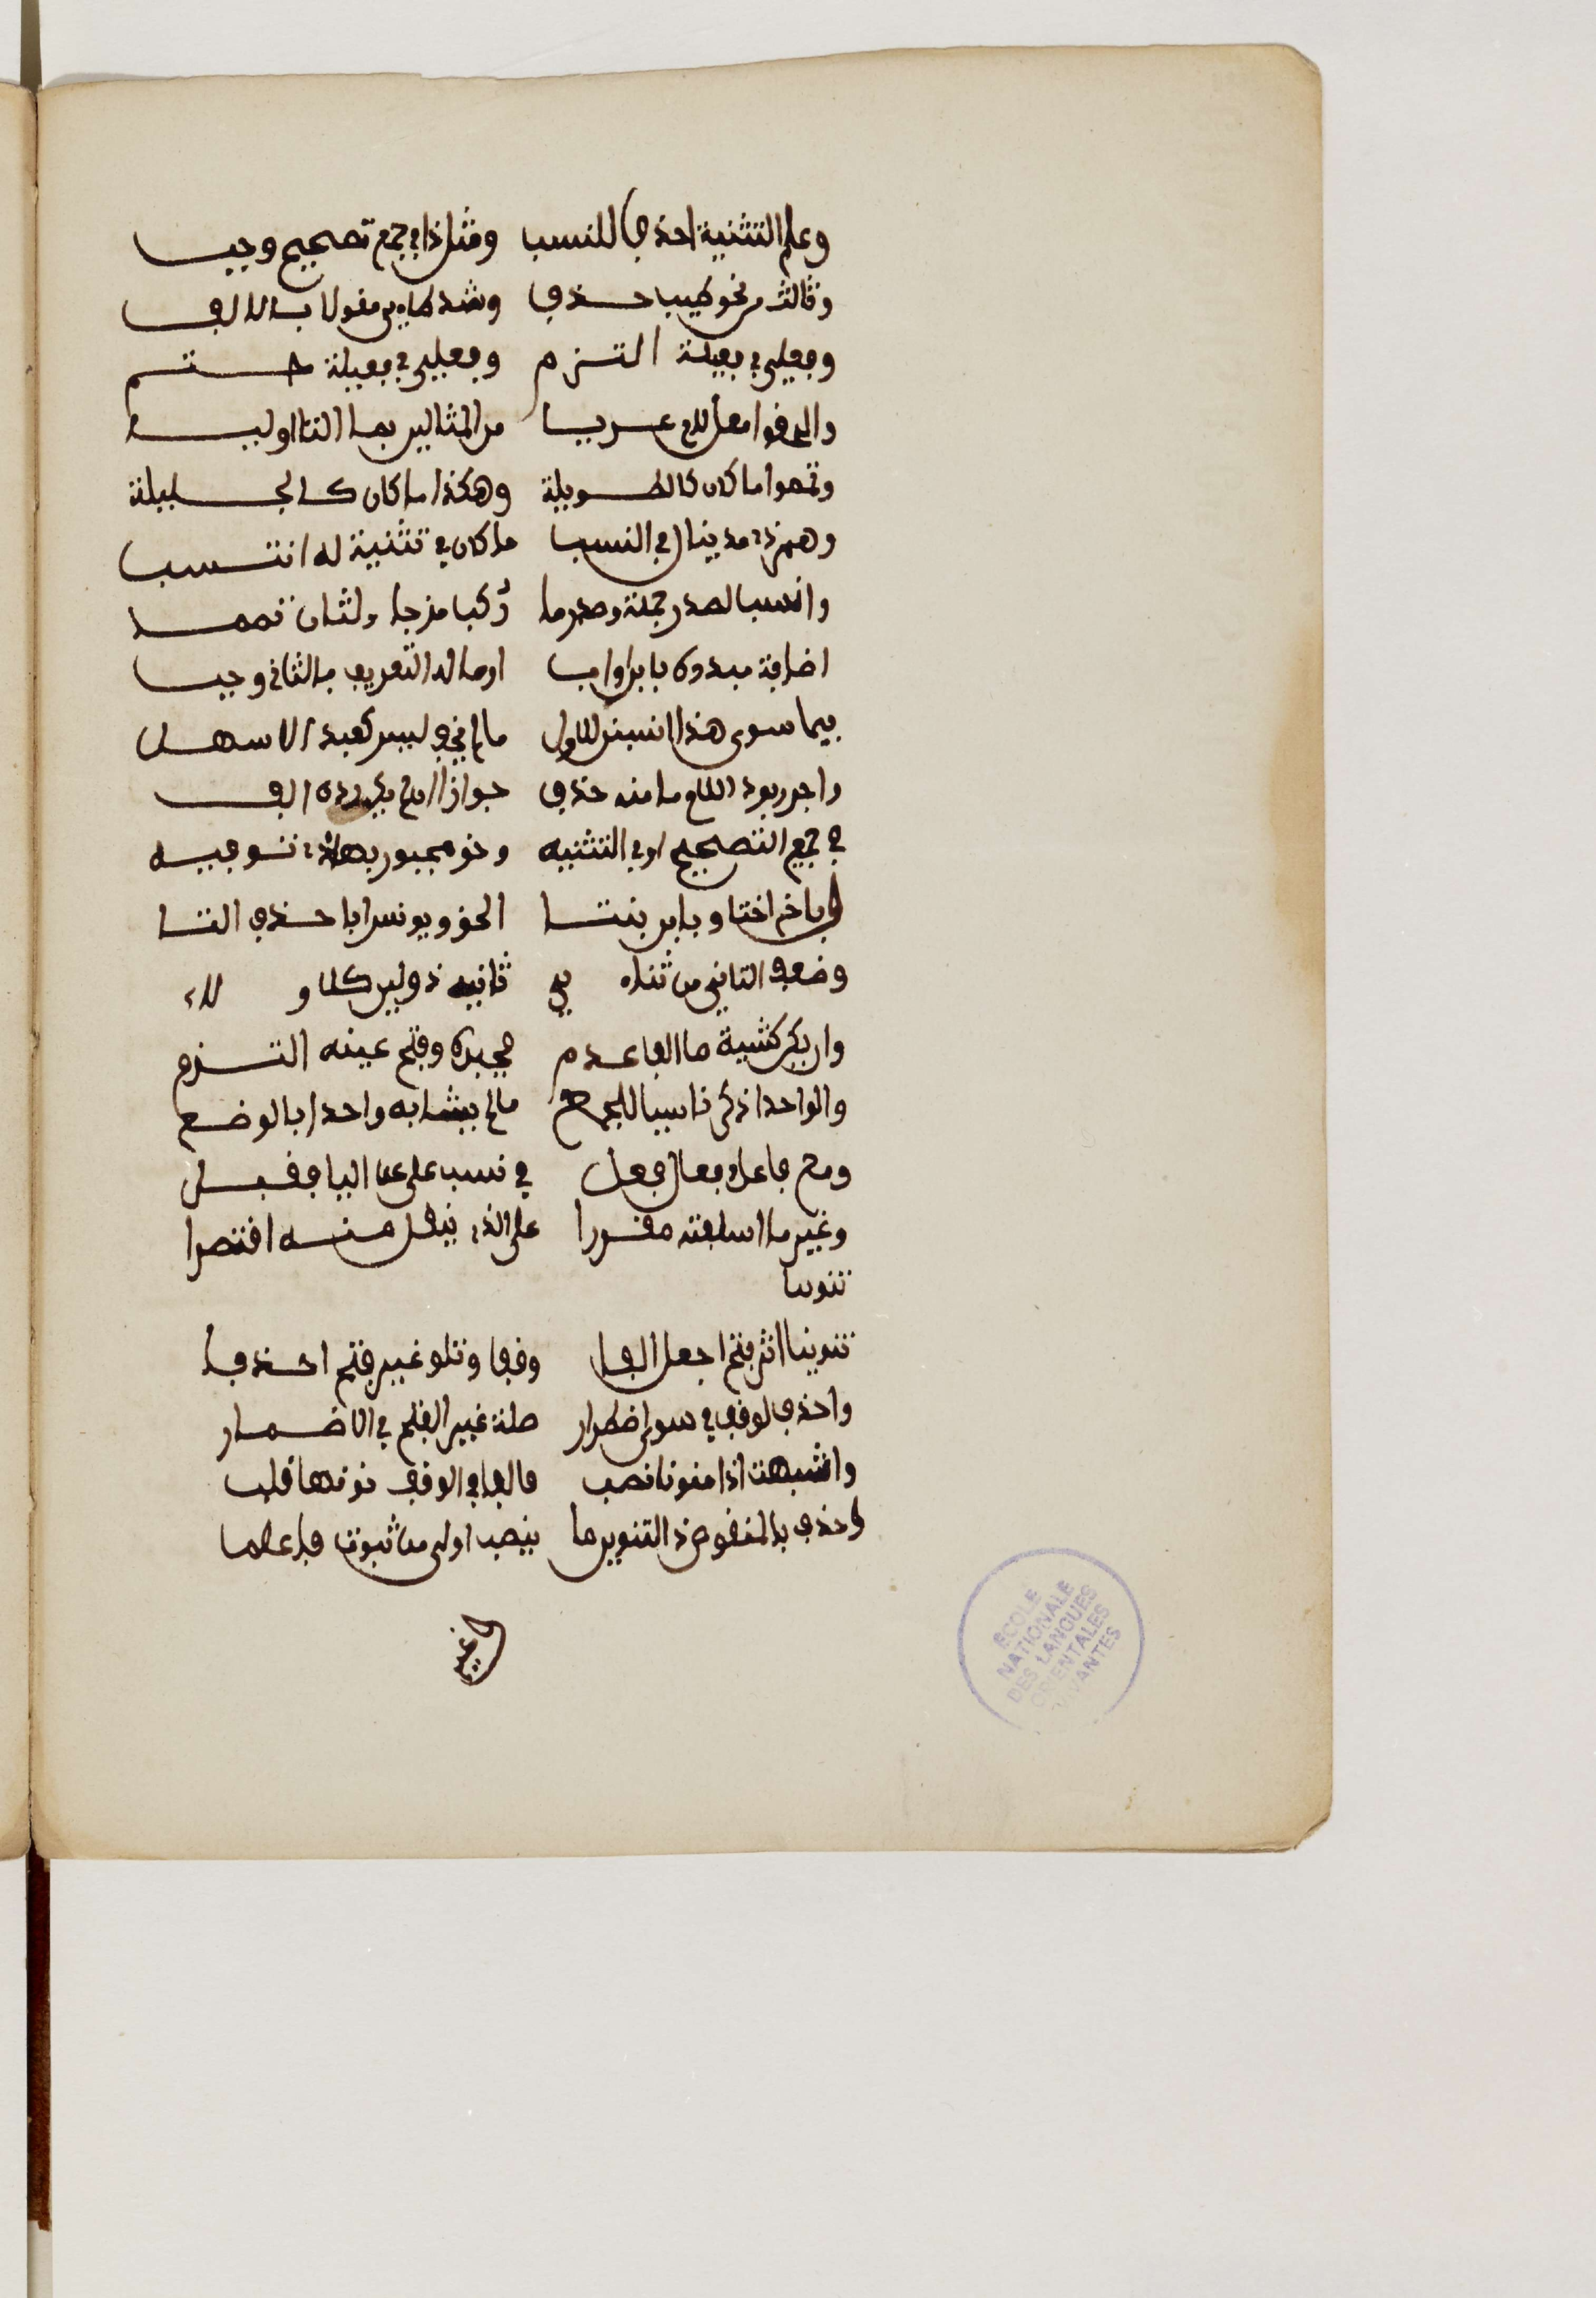 وعلم التثنية احذف للنسب ومثل ذا في جمع تصحيح وجب
وثالث من نحو طيب حذف وشذ طاءي مقولا بالالف
وفعلي في فعيلة التزم وفعيلي في فعيلة حتم
والحقوا معل لام عريا من المثالين بما التا اوليا
وتمموا ما كان كالطويلة وهكذا ما كان كالجليلة
وهمز ذي مد ينال في النسب ما كان في تثنية له انتسب
وانسب لصدر جملة وصدر ما ركب مزجا ولثان تمما
اضافة مبدوة بابن او اب او ما له التعريف بالثاني وجب
فيما سوى هذا انسبن للاول ما لم يخف لبس كعبد الاسهل
واجبر برد اللام ما منه حذف جوازا ان لم يك رده الف
في جمع التصحيح او في التثنيه وحق مجبور بهاذي توفيه
وباخ اختا وبابن بنتا الحق ويونس ابا حذف التا
وضعف الثاني من ثناءي ثانيه ذو لين كلا ولاء
وان يكن كشية ما الفا عدم فجبره وفتح عينه التزم
والواحد اذكر ناسبا للجمع ما لم يشابه واحدا بالوضع
ومع فاعل وفعال فعل في نسب على عن اليا فقبل
وغير ما اسلفته مقررا على الذي ينقل منه اقتصرا
تنوينا
تنوينا اثر فتح اجعل الفا وقفا وتلو غير فتح احذفا
واحذف لوقف في سوى اضطرار صلة غير الفتح في الاضمار
واشبهت اذا منونا نصب فالفا في الوقف نونها قلب
وحذف يا المنقوص ذي التنوين ما ينصب اولى من ثبوت فاعلما
وغير
ECOLE
NATIONALE
DES LANGUES
ORIENTALES
VIVANTES